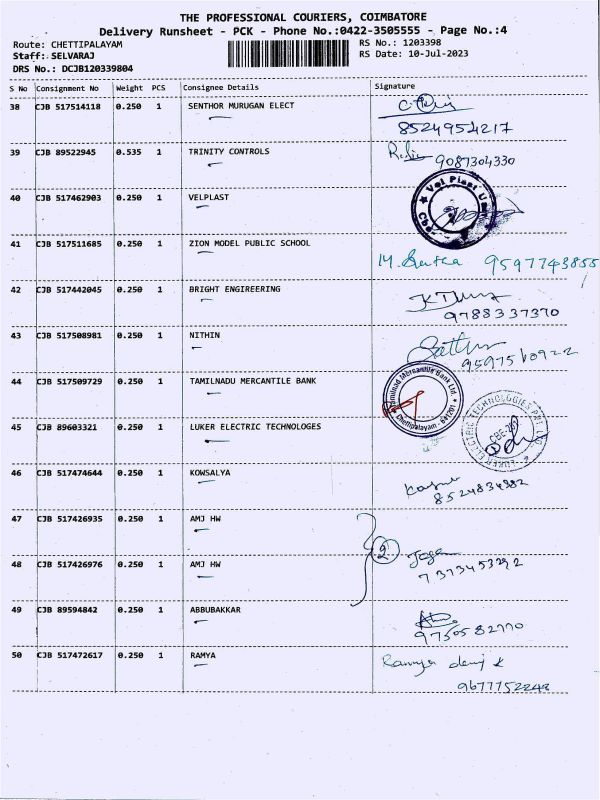 THE PROFESSIONAL COURIERS, COIMBATORE
Delivery Runsheet - PCK - Phone No.:0422-3505555 - Page No.:4
Route: CHETTIPALAYAM RS No.: 1203398
Staff: SELVARAJ RS Date: 10-Jul-2023
DRS No.: DCJB120339804
S No Consignment No Weight PCS Consignee Details Signature
38 CJB 517514118 0.250 1 SENTHOR MURUGAN ELECT
8524954217
39 CJB 89522945 0.535 1 TRINITY CONTROLS
9087304330
40 CJB 517462903 0.250 1 VELPLAST
Vel Plast
41 CJB 517511685 0.250 1 ZION MODEL PUBLIC SCHOOL
9597743855
42 CJB 517442045 0.250 1 BRIGHT ENGIREERING
9788337370
43 CJB 517508981 0.250 1 NITHIN
44 CJB 517509729 0.250 1 TAMILNADU MERCANTILE BANK
Tamilnad Mercantile Bank Ltd.
Chettipalayam - 641201
45 CJB 89603321 0.250 1 LUKER ELECTRIC TECHNOLOGES
LUKER ELECTRIC TECHNOLOGIES PVT LTD
46 CJB 517474644 0.250 1 KOWSALYA
8524834982
47 CJB 517426935 0.250 1 AMJ HW
2
48 CJB 517426976 0.250 1 AMJ HW
7373453292
49 CJB 89594842 0.250 1 ABBUBAKKAR
9750582770
50 CJB 517472617 0.250 1 RAMYA
Ramya
9677752248